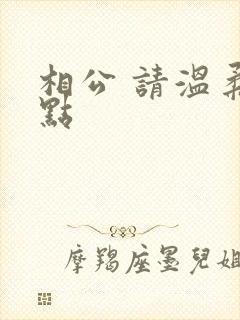 相公 請溫柔
點
摩羯座墨兒姐